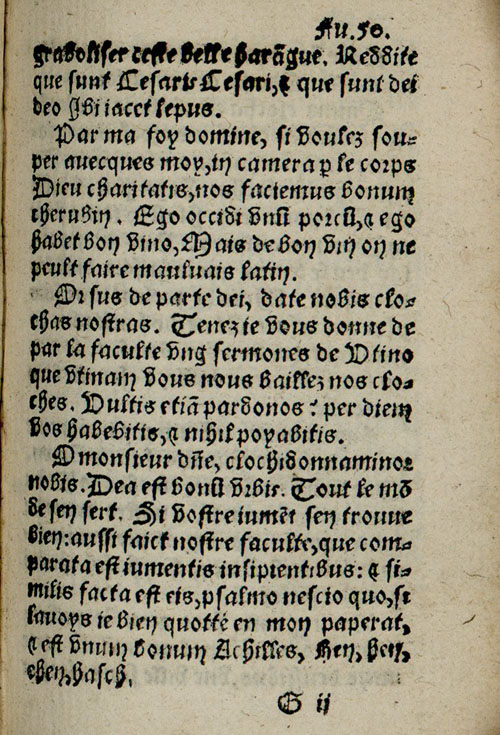 Fu.50.
graboliser ceste belle harãgue. Reddite
que sunt Cesaris Cesari, ⁊ que sunt dei
deo Ibi iacet lepus.
Par ma foy domine, si voulez sou⸗
per auecques moy, in camera ꝑ le corps
Dieu charitatis, nos faciemus bonum
cherubin. Ego occidi vnũ porcũ, ⁊ ego
habet bon vino, Mais de bon vin on ne
peult faire mauluais latin.
Or sus de parte dei, date nobis clo⸗
chas nostras. Tenez ie vous donne de
par la faculte vng sermones de Vtino
que vtinam vous nous baillez nos clo⸗
ches. Vultis etiã pardonos? per diem
vos habebitis, ⁊ nihil poyabitis.
O monsieur dñe, clochidonnaminor
nobis. Dea est bonũ vrbis. Tout le mõ
de sen sert. Si vostre iumẽt sen trouue
bien: aussi faict nostre faculte, que com⸗
parata est iumentis insipientibus: ⁊ si⸗
milis facta est eis, psalmo nescio quo, si
lauoys ie bien quotté en mon paperat,
⁊ est vnum bonum Achilles, Hen, hen,
ehen, hasch,
G ii